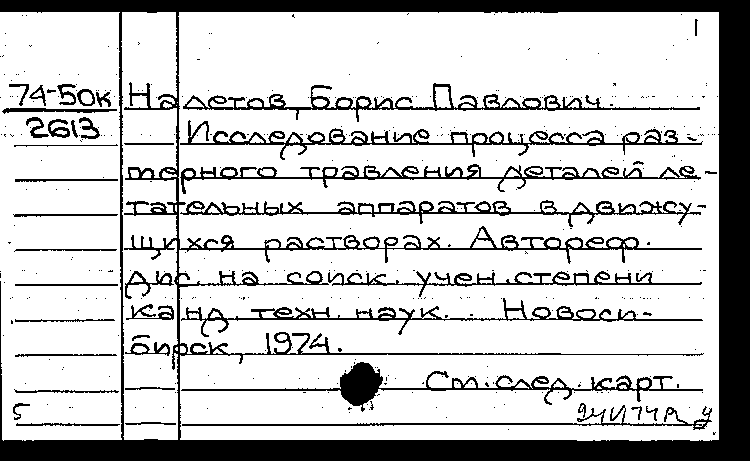 1
74-50к
2613
Налетов, Борис Павлович.
Исследование процесса раз-
мерного травления деталей ле-
тательных аппаратов в движу-
щихся растворах. Автореф.
дис. на соиск. учен. степени
канд. техн. наук. Новоси-
бирск, 1974.
См. след. карт.
5